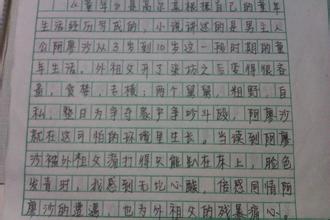 《童年》是高尔基根据自己的童年
生活经历写成的,小说讲述的是男主人
公阿廖沙从3岁到10岁这一段时期的童
年生活。外祖父开了染坊之后变得很吝
啬,贪婪,专横;两个舅舅,粗野,自
私,整日为争夺家产争吵斗殴,阿廖沙
就在这可怕的环境里生长。当读到阿廖
沙被外祖父毒打得只能趴在床上,脸色
发青时,我感到无比心酸,倍感同情阿
廖沙的遭遇,也为外祖父的残暴痛心